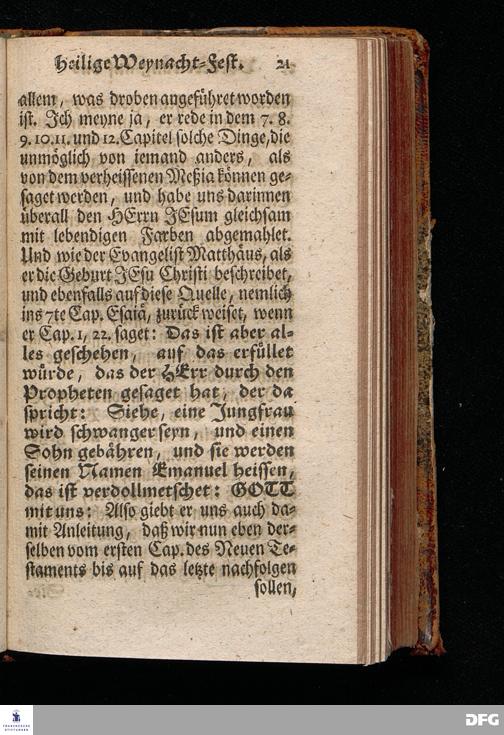 Heilige Weynacht-Fest. 21
allem, was droben angeführet worden
ist. Ich meyne ja, er rede in dem 7. 8.
9. 10. 11. und 12. Capitel solche Dinge, die
unmöglich von iemand anders, als
von dem verheissenen Meßia können ge-
saget werden, und habe uns darinnen
überall den HErrn JEsum gleichsam
mit lebendigen Farben abgemahlet.
Und wie der Evangelist Matthäus, als
er die Geburt JEsu Christi beschreibet,
und ebenfalls auf diese Quelle, nemlich
ins 7te Cap. Esaiä, zurück weiset, wenn
er Cap. 1, 22. saget: Das ist aber al-
les geschehen, auf das erfüllet
würde, das der HErr durch den
Propheten gesaget hat, der da
spricht: Siehe, eine Jungfrau
wird schwanger seyn, und einen
Sohn gebähren, und sie werden
seinen Namen Emanuel heissen,
das ist verdollmetschet: GOTT
mit uns: Also giebt er uns auch da-
mit Anleitung, daß wir nun eben der-
selben vom ersten Cap. des Neuen Te-
staments bis auf das letzte nachfolgen
sollen,
FRANCKESCHE
STIFTUNGEN
DFG